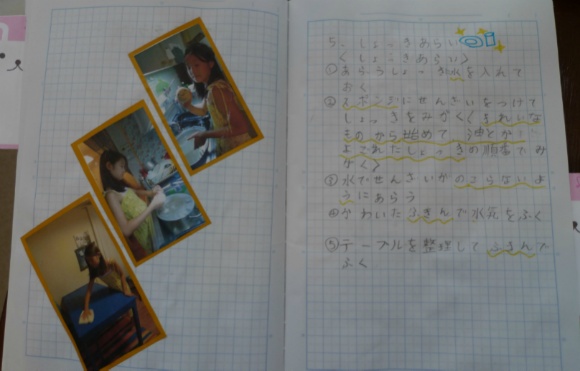 5. しょっきあらい
くしょっきあらい>
①あらうしょっきに水を入れて
おく
②スポンジにせんざいをつけて
しょっきをみがく(きれいな
ものから始めて
よごれたしょっきの順番でみ
がく>
③水でせんざいがのこらないよ
うにあらう
④かわいたふきんで水気をふく
⑤テーブルを整理してふきんで
ふく